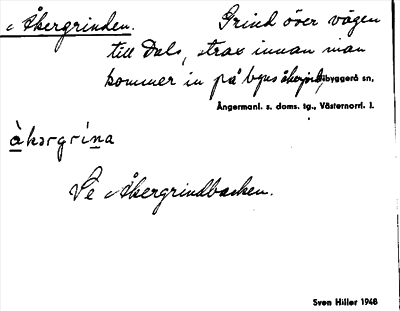 Åkergrinden. Grind över vägen
till Dals, strax innan man
kommer in på byns åkerjord. ibyggerå sn,
Ångermanl. s. doms. tg., Västernorrl. l.
àkərgrína
Se Åkergrindbacken.
Sven Hiller 1948